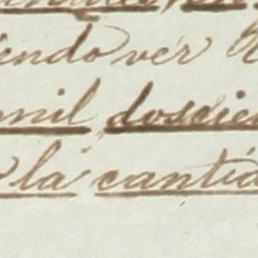 endo ver
mil doscien
la cantid